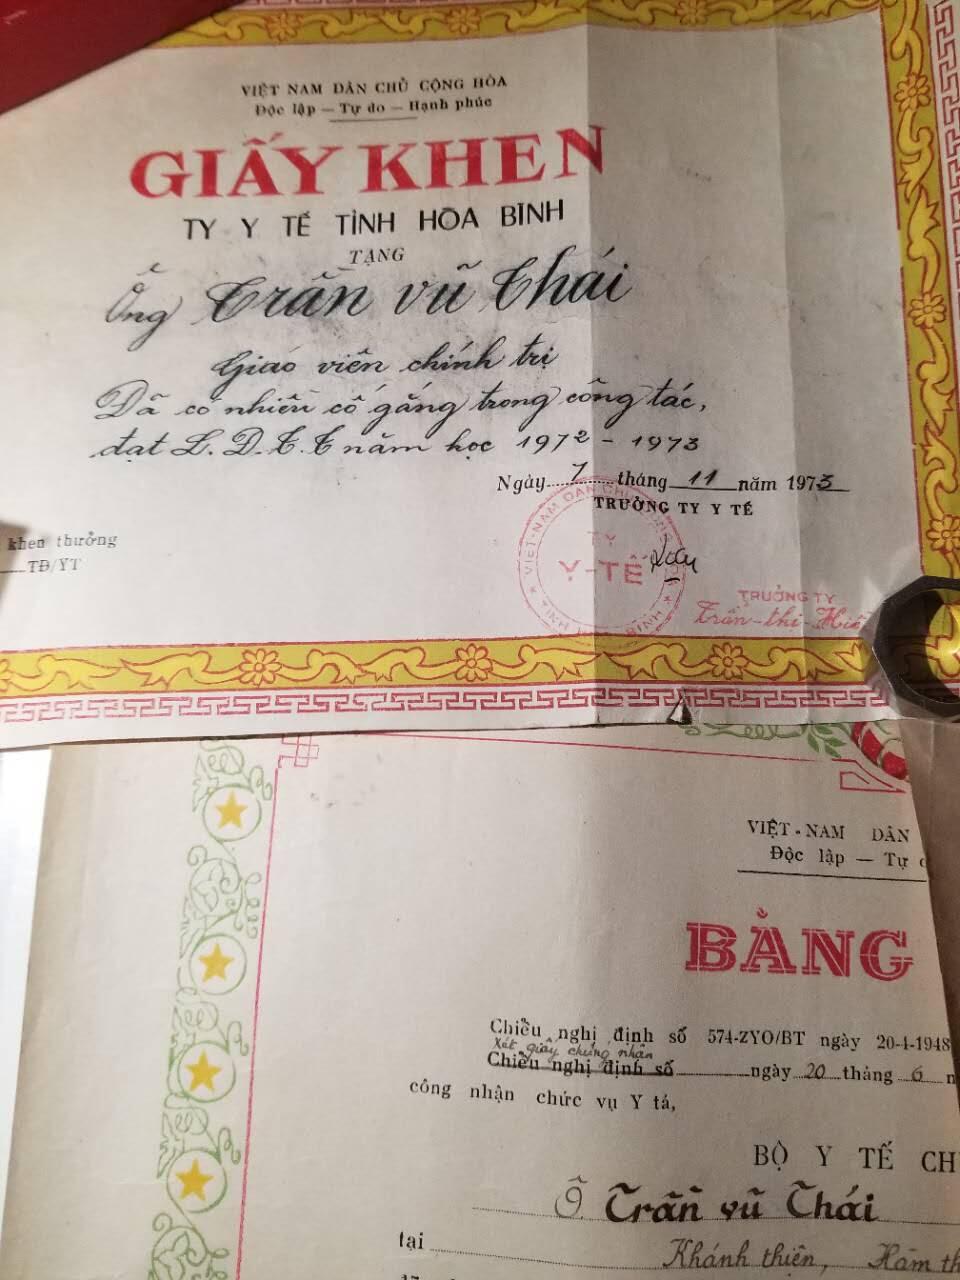 VIỆT NAM DÂN CHỦ CỘNG HÒA
Độc lập — Tự do — Hạnh phúc
GIẤY KHEN
TY Y TẾ TỈNH HÒA BÌNH
TẶNG
Ông Trần vũ Thái
Giáo viên chính trị
Đã có nhiều cố gắng trong công tác,
đạt L.Đ.T.T năm học 1972 - 1973
Ngày 7 tháng 11 năm 1973
TRƯỞNG TY Y TẾ
khen thưởng
TĐ/YT
VIỆT-NAM DÂN CHỦ
TY
Y-TẾ
TỈNH BÌNH
TRƯỞNG TY
Trần-thị-
VIỆT-NAM DÂN
Độc lập — Tự
BẰNG
Chiều nghị định số 574-ZYO/BT ngày 20-4-1948
Xét giấy chứng nhận
Chiều nghị định số ngày 20 tháng 6
công nhận chức vụ Y tá,
BỘ Y TẾ CH
Ô Trần vũ Thái
tại Khánh thiện, Hàm th